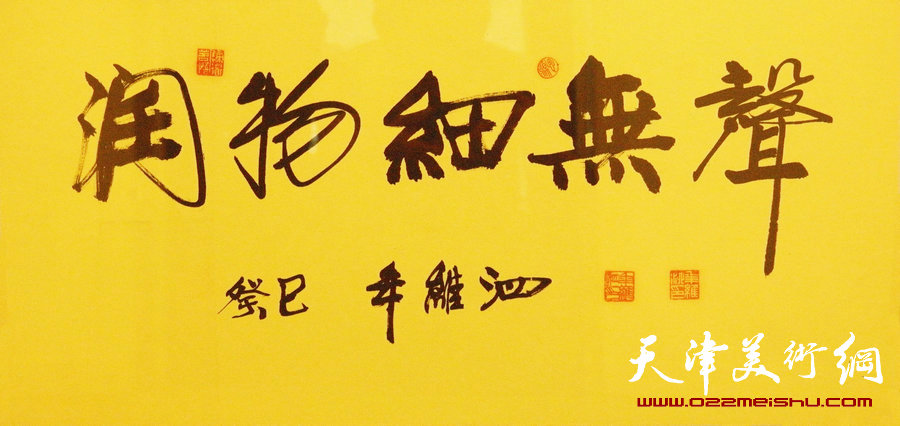 润物細無聲
癸巳 年維泗
天津美術網
www.022meishu.com